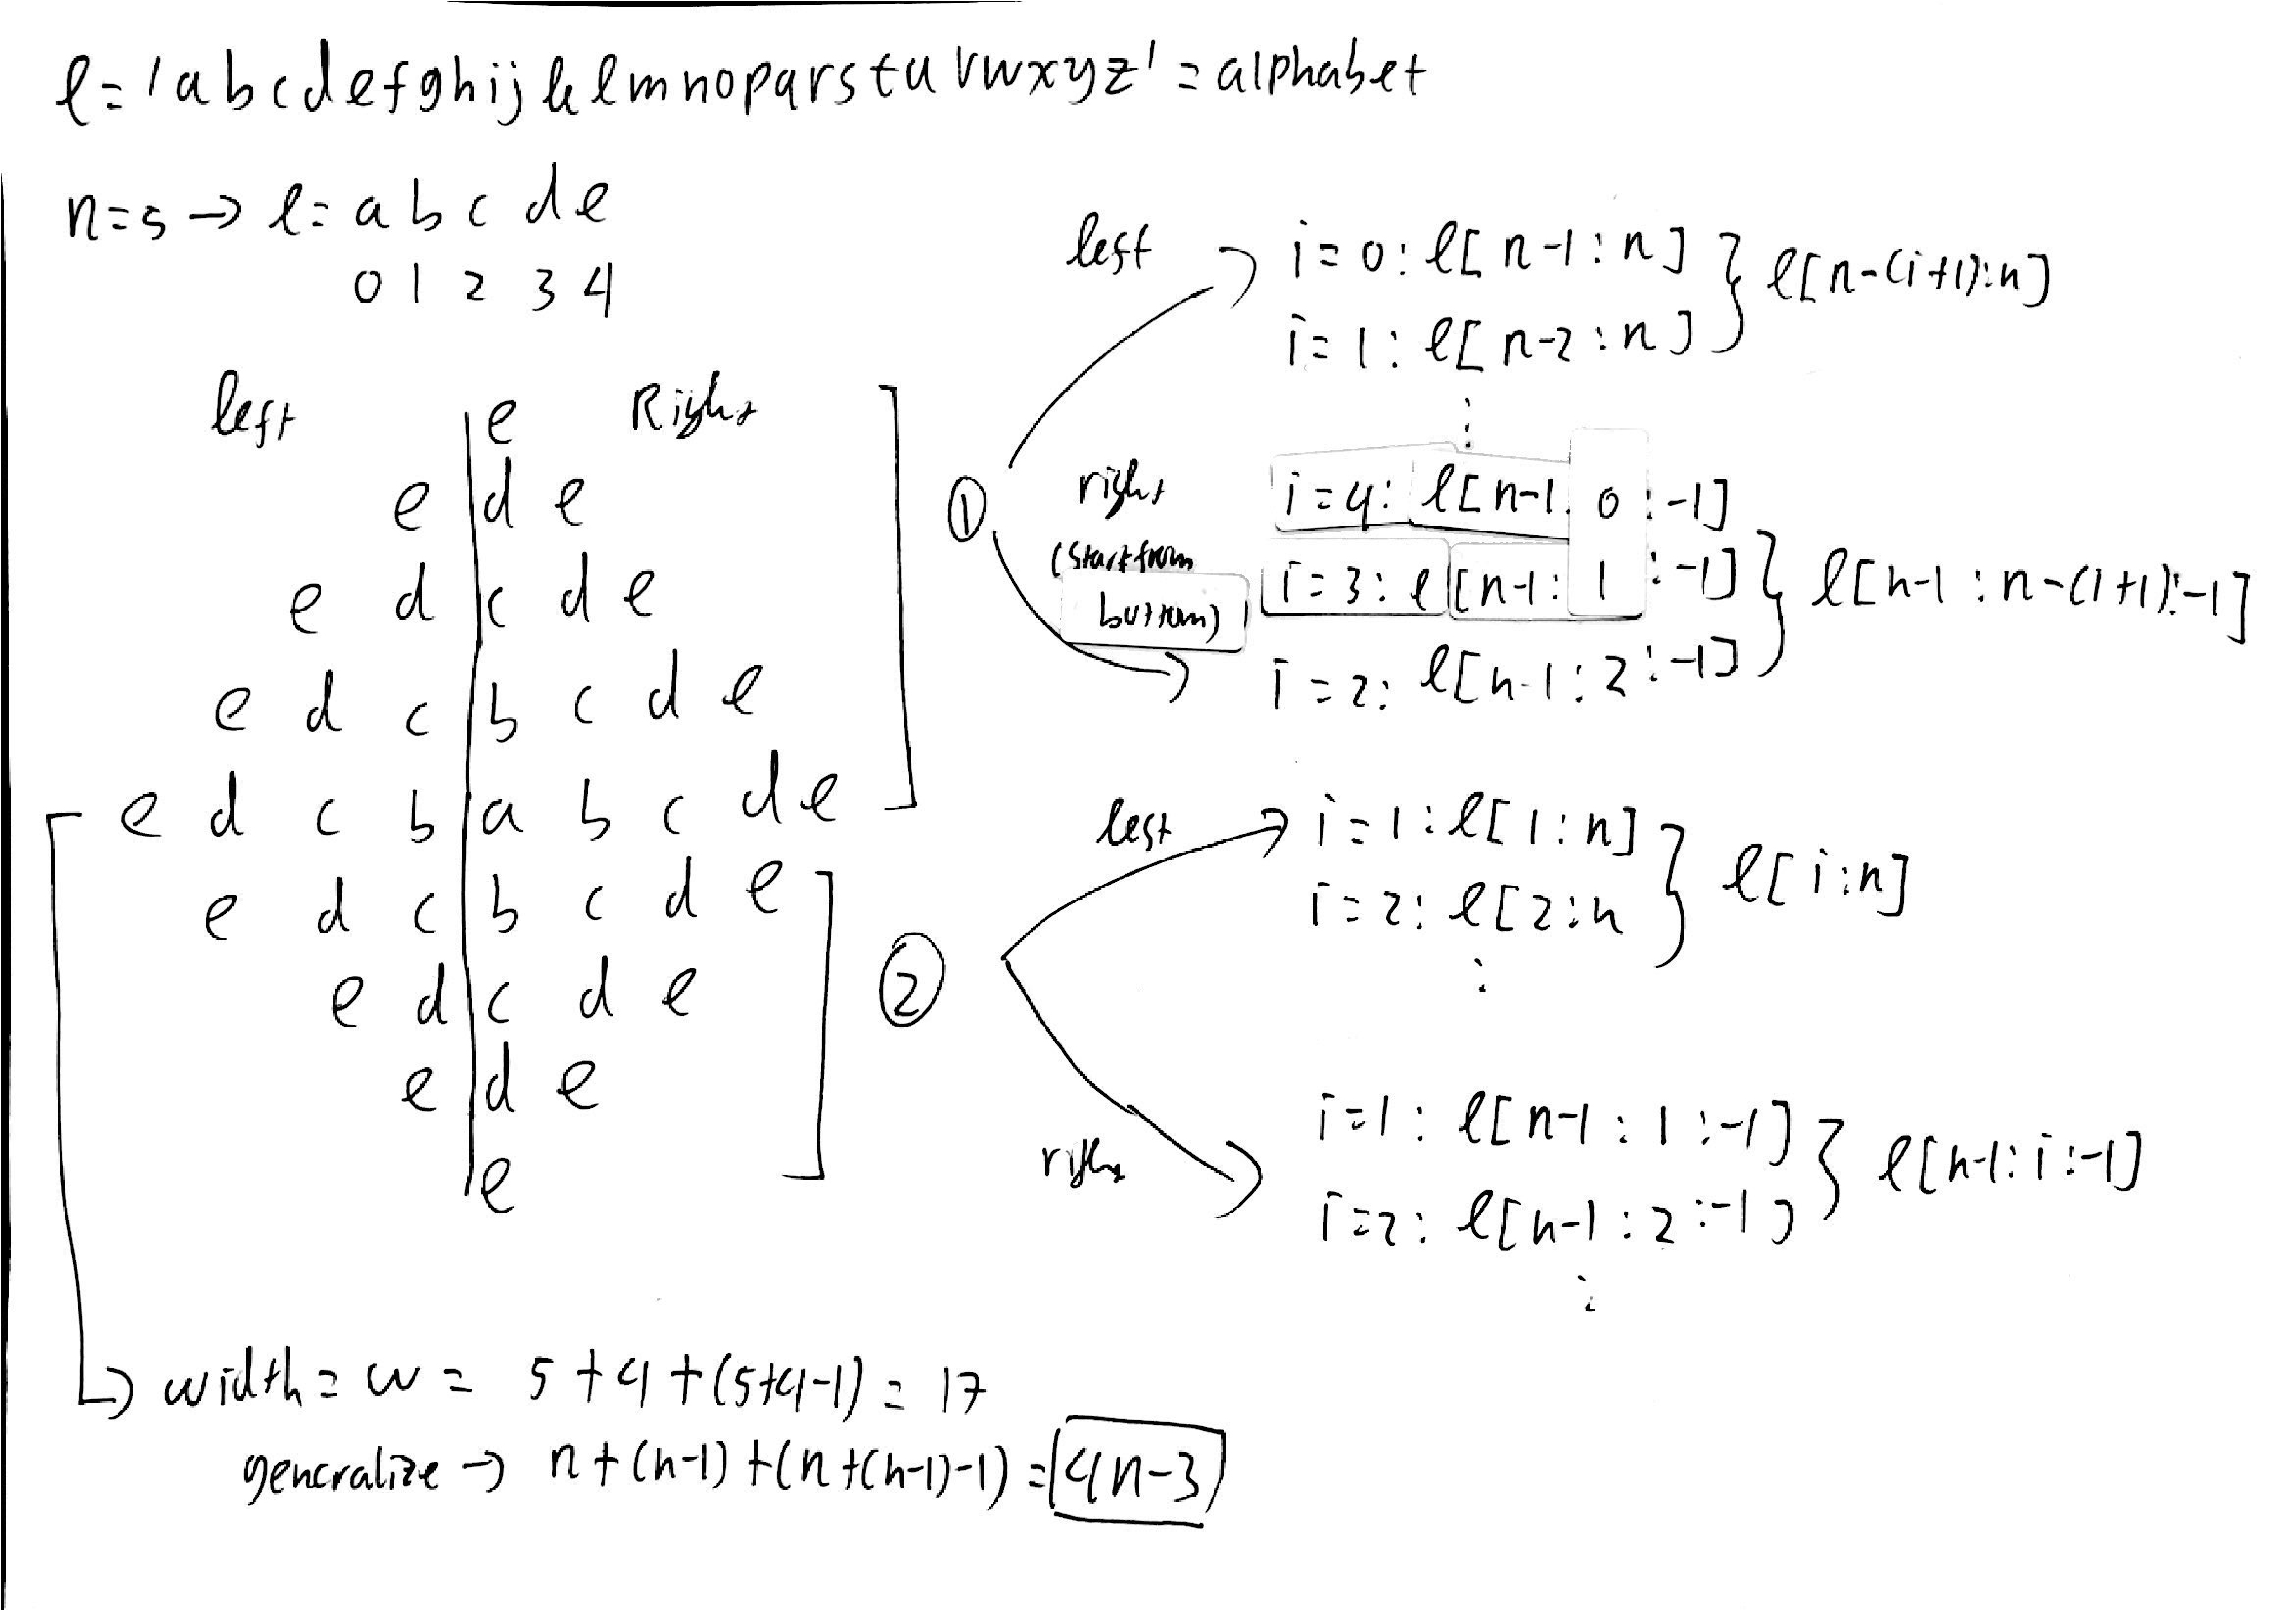 l='abcdefghijklmnopqrstuvwxyz' = alphabet
n=5 → l= a b c d e
0 1 2 3 4
left e Right
e d e
e d c d e
e d c b c d e
e d c b a b c d e
e d c b c d e
e d c d e
e d e
e
①
left → i=0: l[n-1:n] } l[n-(i+1):n]
i=1: l[n-2:n]
⋮
right
(start from
bottom)
i=4: l[n-1: 0:-1]
i=3: l[n-1: 1:-1] } l[n-1:n-(i+1):-1]
i=2: l[n-1:2:-1]
②
left → i=1: l[1:n] } l[i:n]
i=2: l[2:n
⋮
right → i=1: l[n-1:1:-1] } l[n-1:i:-1]
i=2: l[n-1:2:-1]
⋮
↳ width = w = 5+4+(5+4-1) = 17
generalize → n+(n-1)+(n+(n-1)-1) = 4n-3